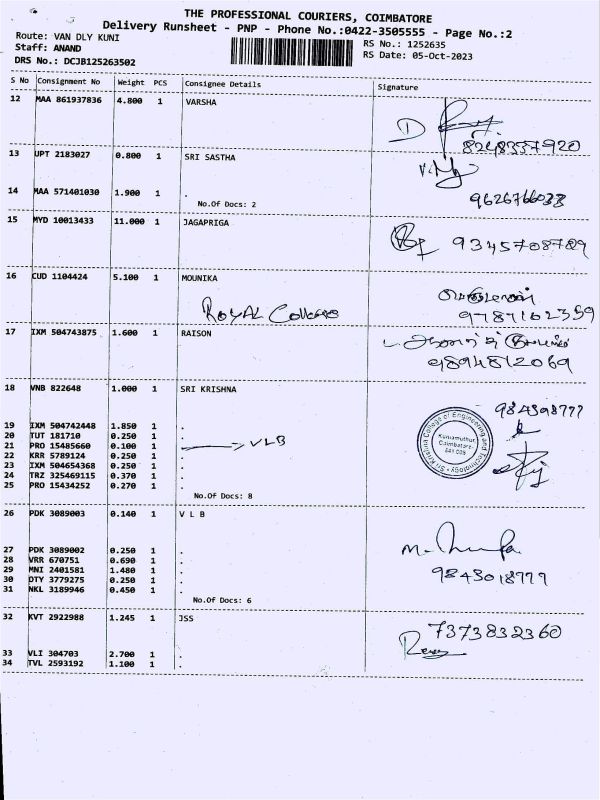 THE PROFESSIONAL COURIERS, COIMBATORE
Delivery Runsheet - PNP - Phone No.:0422-3505555 - Page No.:2
Route: VAN DLY KUNI
Staff: ANAND
DRS No.: DCJB125263502
RS No.: 1252635
RS Date: 05-Oct-2023
S No Consignment No Weight PCS Consignee Details Signature
12 MAA 861937836 4.800 1 VARSHA
8248357920
13 UPT 2183027 0.800 1 SRI SASTHA
14 MAA 571401030 1.900 1 .
No.Of Docs: 2
15 MYD 10013433 11.000 1 JAGAPRIGA
9345708709
16 CUD 1104424 5.100 1 MOUNIKA
ROYAL College
9787102359
17 IXM 504743875 1.600 1 RAISON
9894812069
18 VNB 822648 1.000 1 SRI KRISHNA
984398777
Sri Krishna College of Engineering and Technology
Kuniamuthur,
Coimbatore-
641 008
19 IXM 504742448 1.850 1 .
20 TUT 181710 0.250 1 .
21 PRO 15485660 0.100 1 . VLB
22 KRR 5789124 0.250 1 .
23 IXM 504654368 0.250 1 .
24 TRZ 325469115 0.370 1 .
25 PRO 15434252 0.270 1 .
No.Of Docs: 8
26 PDK 3089003 0.140 1 V L B
27 PDK 3089002 0.250 1 .
28 VRR 670751 0.690 1 .
29 MNI 2401581 1.480 1 .
30 OTY 3779275 0.250 1 .
31 NKL 3189946 0.450 1 .
9843018777
No.Of Docs: 6
32 KVT 2922988 1.245 1 JSS
7373832360
33 VLI 304703 2.700 1 .
34 TVL 2593192 1.100 1 .